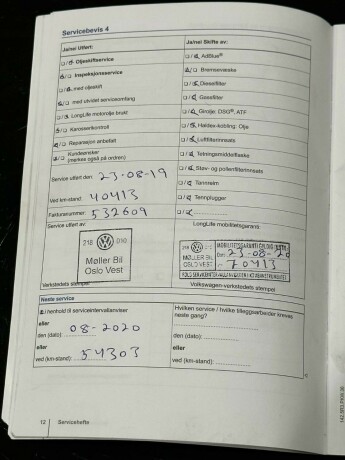 Servicebevis 4
Ja/nei Utført:
Ja/nei Skifte av:
Oljeskiftservice
AdBlue®
Inspeksjonsservice
Bremsevæske
med oljeskift
Dieselfilter
med utvidet serviceomfang
Gassfilter
LongLife motorolje brukt
Girolje: DSG®, ATF
Karosserikontroll
Haldex-kobling: Olje
Reparasjon anbefalt
Luftfilterinnsats
Kundeønsker
(merkes også på ordren)
Tetningsmiddelflaske
Støv- og pollenfilterinnsats
Service utført den: 23-08-19
Tannreim
Ved km-stand: 40413
Tannhjulpumper
Fakturanummer: 532609
Service utført av:
LongLife mobilitetsgaranti:
218 010
Møller Bil
Oslo Vest
MØLLER BIL
OSLO VEST
Verkstedets stempel
Volkswagen-verkstedets stempel
Neste service
i henhold til serviceintervallanviser
Hvilken service / hvilke tilleggsarbeider kreves
neste gang?
eller
den (dato): 08-2020
den (dato):
eller
eller
ved (km-stand): 54303
ved (km-stand):
12 Servicehefte